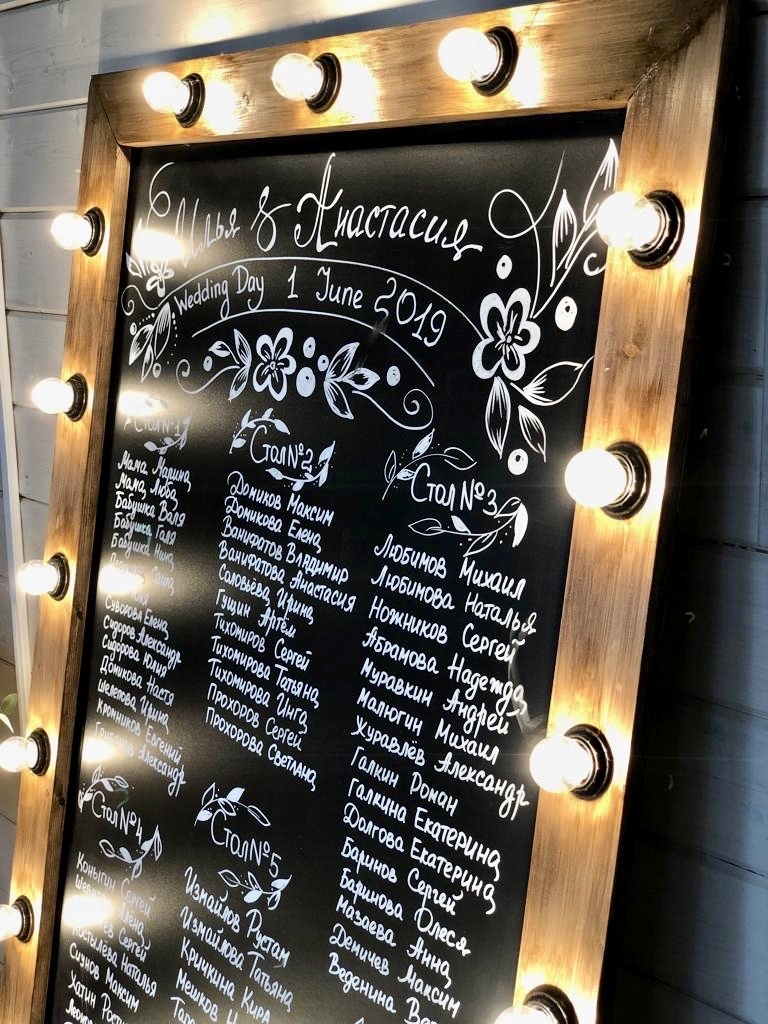 Илья & Анастасия
Wedding Day 1 June 2019
Стол №1
Мама Марина
Мама Люба
Бабушка Валя
Бабушка Галя
Бабушка Нина
Суворова Елена
Сидоров Александр
Сидорова Юлия
Домикова Настя
Шелепова Ирина
Кромников Евгений
Грибанов Александр
Стол №2
Домиков Максим
Домикова Елена
Ванифатов Владимир
Ванифатова Анастасия
Соловьёва Ирина
Гущин Артём
Тихомиров Сергей
Тихомирова Татьяна
Тихомирова Инга
Прохоров Сергей
Прохорова Светлана
Стол №3
Любимов Михаил
Любимова Наталья
Ножников Сергей
Абрамова Надежда
Муравкин Андрей
Малюгин Михаил
Журавлёв Александр
Галкин Роман
Галкина Екатерина
Долгова Екатерина
Баринов Сергей
Баринова Олеся
Мазаева Анна
Демичев Максим
Веденина
Стол №4
Коныгин Сергей
Сергей
Костылёва Наталья
Сизнов Максим
Хатин
Стол №5
Измайлов Рустам
Измайлова Татьяна
Кричкина Кира
Мешков